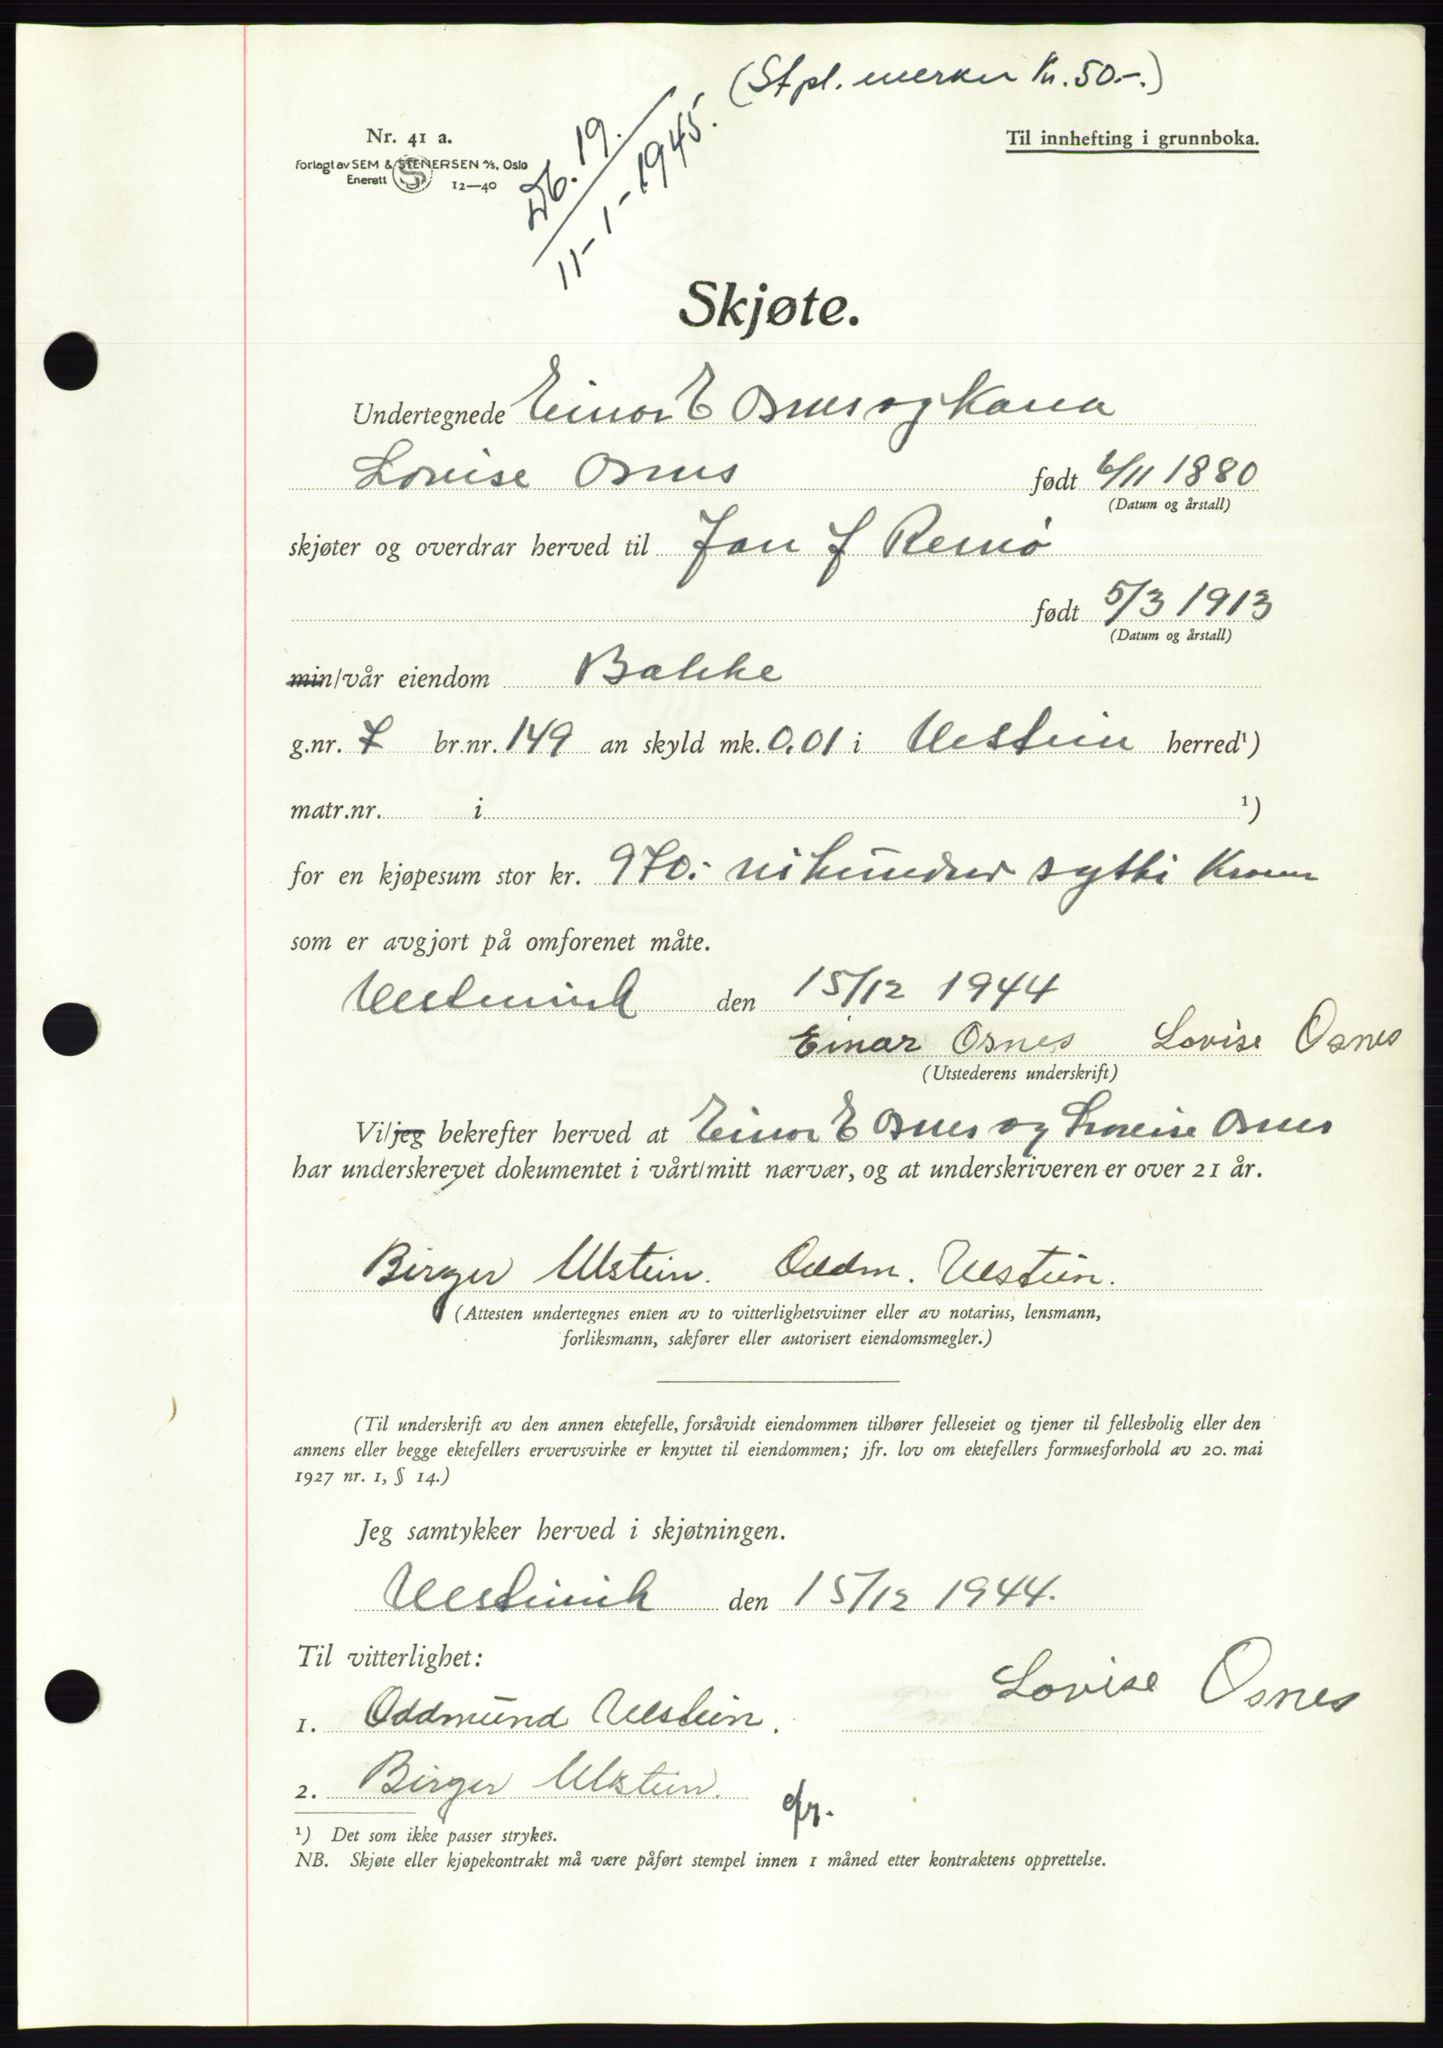 (Stpl. merker Kr. 50.-.)
Nr. 41 a.
Til innhefting i grunnboka.
Forlagt av SEM & STENERSEN A/S, Oslo
Enerett 12—40
Db. 19.
11-1-1945.
Skjøte.
Undertegnede Einar E Osnes og Kona
Lovise Osnes født 6/11 1880
(Datum og årstall)
skjøter og overdrar herved til Jan J Remø
født 5/3 1913
(Datum og årstall)
min/vår eiendom Bakke
g.nr. 7 br.nr. 149 an skyld mk. 0.01 i Ulstein herred¹)
matr.nr. i ¹)
for en kjøpesum stor kr. 970.- nihundrer sytti Kroner
som er avgjort på omforenet måte.
Ulsteinvik den 15/12 1944
Einar Osnes Lovise Osnes
(Utstederens underskrift)
Vi/jeg bekrefter herved at Einar E Osnes og Lovise Osnes
har underskrevet dokumentet i vårt/mitt nærvær, og at underskriveren er over 21 år.
Birger Ulstein. Oddm. Ulstein.
(Attesten undertegnes enten av to vitterlighetsvitner eller av notarius, lensmann,
forliksmann, sakfører eller autorisert eiendomsmegler.)
(Til underskrift av den annen ektefelle, forsåvidt eiendommen tilhører felleseiet og tjener til fellesbolig eller den
annens eller begge ektefellers ervervsvirke er knyttet til eiendommen; jfr. lov om ektefellers formuesforhold av 20. mai
1927 nr. 1, § 14.)
Jeg samtykker herved i skjøtningen.
Ulsteinvik den 15/12 1944.
Til vitterlighet:
Lovise Osnes
1. Oddmund Ulstein.
2. Birger Ulstein.
¹) Det som ikke passer strykes.
NB. Skjøte eller kjøpekontrakt må være påført stempel innen 1 måned etter kontraktens opprettelse.